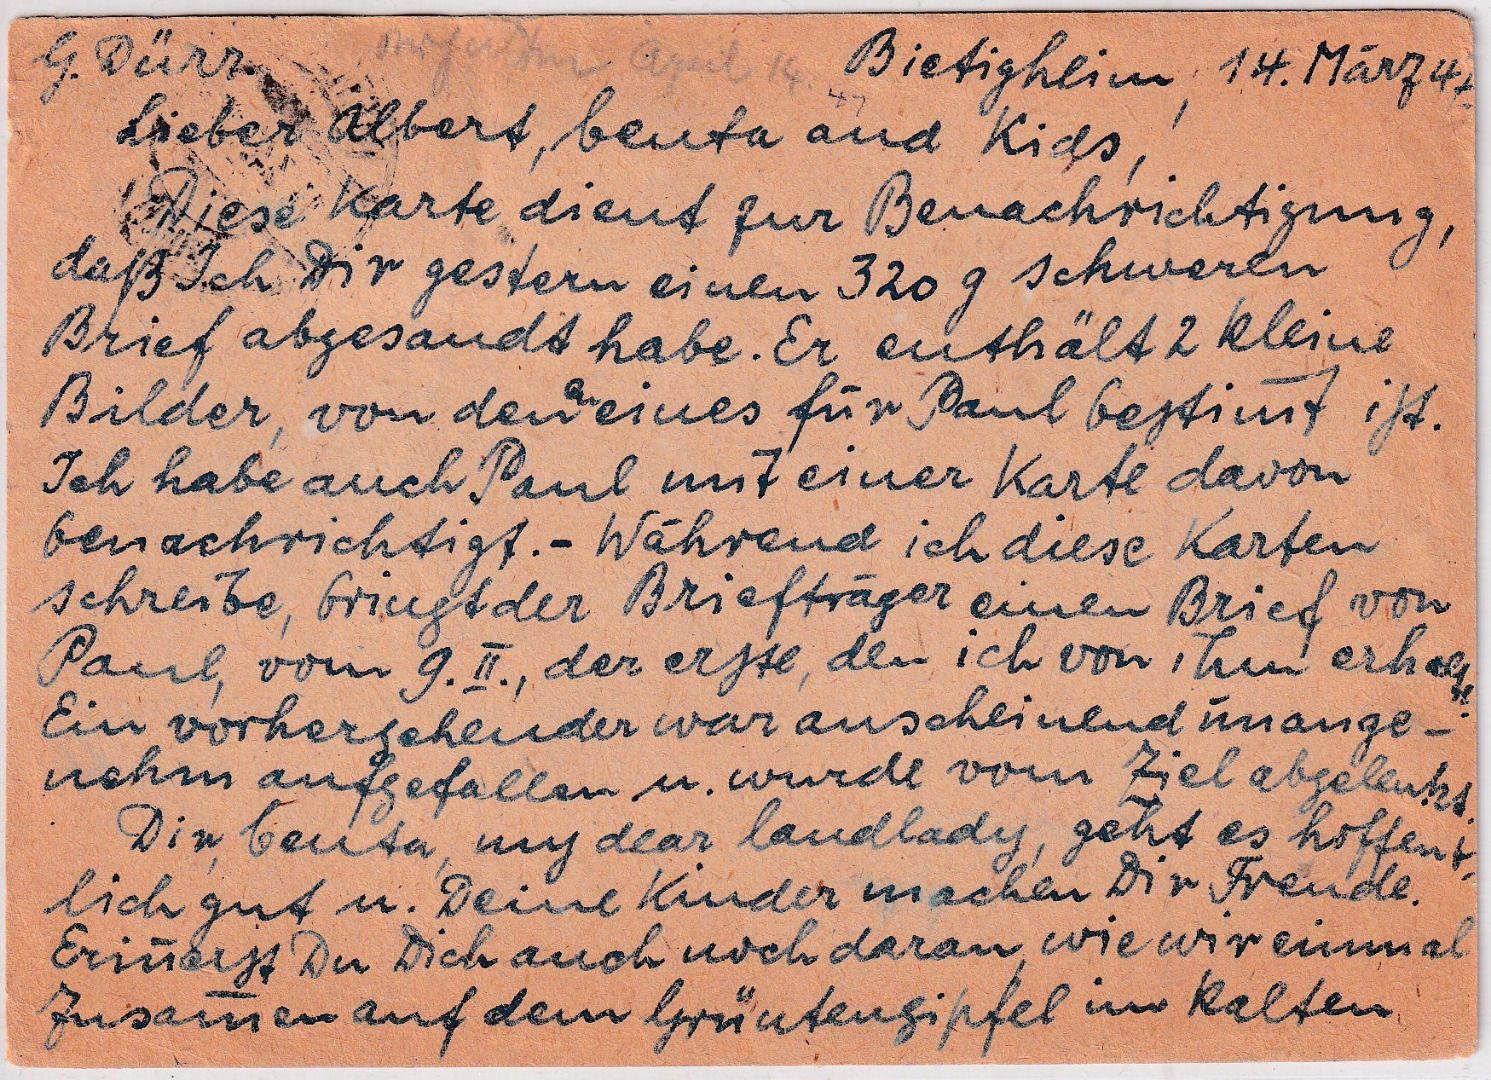 G. Dürr
April 14. 47
Bietigheim, 14. März 47
Lieber Albert, benta and Kids,
Diese Karte dient zur Benachrichtigung,
daß Ich Dir gestern einen 320 g schweren
Brief abgesandt habe. Er enthält 2 kleine
Bilder, von denen eines für Paul bestim̅t ist.
Ich habe auch Paul mit einer Karte davon
benachrichtigt. – Während ich diese Karten
schreibe, bringt der Briefträger einen Brief von
Paul, vom 9. II., der erste, den ich von ihm erhalte.
Ein vorhergehender war anscheinend unange-
nehm aufgefallen u. wurde vom Ziel abgelenkt.
Dir, benta, my dear landlady, geht es hoffent-
lich gut u. Deine Kinder machen Dir Freude.
Erin̅erst Du Dich auch noch daran, wie wir einmal
zusam̅en auf dem Grüntengipfel im kalten